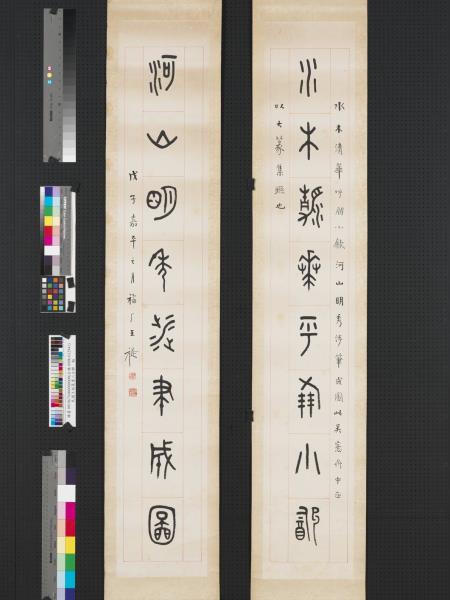 水木清華呼朋小飲河山明秀涉筆成圖此吳愙齋中丞
水木清華呼朋小飲
以大篆集聯也
河山明秀涉筆成圖
戊子嘉平之月福厂王禔